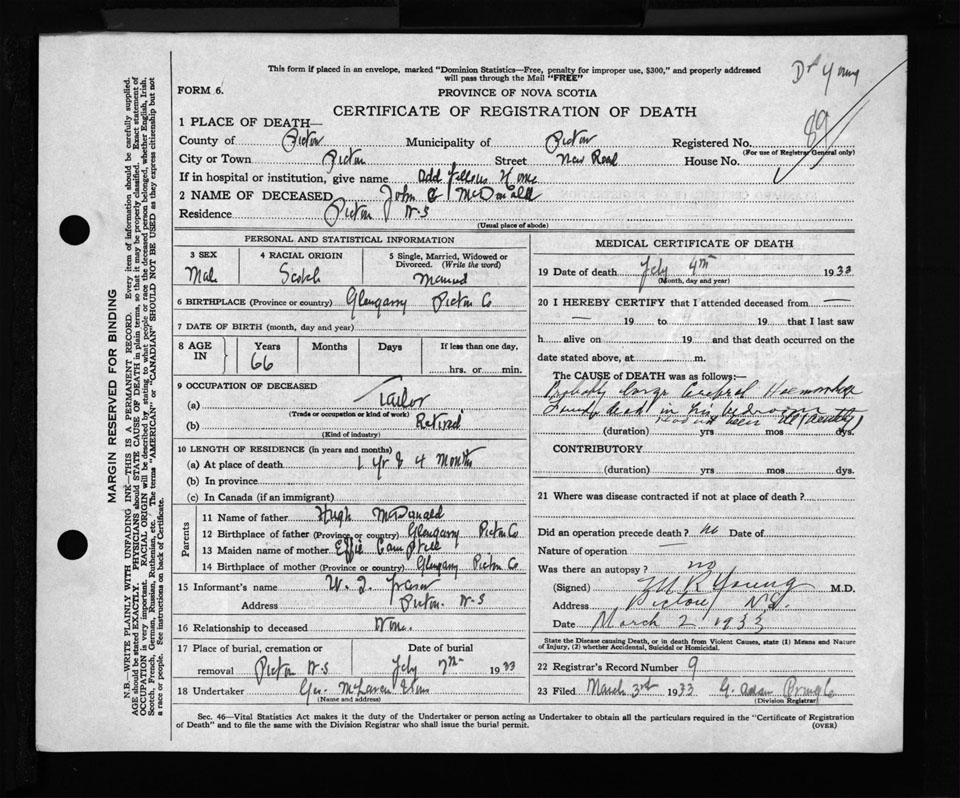 This form if placed in an envelope, marked "Dominion Statistics—Free, penalty for improper use, $300," and properly addressed
will pass through the Mail "FREE"
Dr Young
FORM 6.
PROVINCE OF NOVA SCOTIA
CERTIFICATE OF REGISTRATION OF DEATH
89
1 PLACE OF DEATH—
County of Pictou Municipality of Pictou Registered No.
(For use of Registrar General only)
City or Town Pictou Street New Road House No.
If in hospital or institution, give name Odd Fellows Home
2 NAME OF DECEASED John G McDonald
Residence Pictou N-S
(Usual place of abode)
PERSONAL AND STATISTICAL INFORMATION
3 SEX 4 RACIAL ORIGIN 5 Single, Married, Widowed or Divorced. (Write the word)
Male Scotch Married
6 BIRTHPLACE (Province or country) Glengarry Pictou Co
7 DATE OF BIRTH (month, day and year)
8 AGE IN Years Months Days If less than one day.
66 hrs. or min.
9 OCCUPATION OF DECEASED
(a) Tailor
(Trade or occupation or kind of work)
(b) Retired
(Kind of industry)
10 LENGTH OF RESIDENCE (in years and months)
(a) At place of death 1 yr & 4 months
(b) In province
(c) In Canada (if an immigrant)
Parents
11 Name of father Hugh McDonald
12 Birthplace of father (Province or country) Glengarry Pictou Co
13 Maiden name of mother Effie Campbell
14 Birthplace of mother (Province or country) Glengarry Pictou Co
15 Informant's name W.
Address Pictou. N-S
16 Relationship to deceased None.
17 Place of burial, cremation or Date of burial
removal Pictou N-S Feby 7th 1933
18 Undertaker Geo. McLaren
(Name and address)
MEDICAL CERTIFICATE OF DEATH
19 Date of death Feby 4th 1933
(Month, day and year)
20 I HEREBY CERTIFY that I attended deceased from —
— 19 to 19 that I last saw
h alive on 19 and that death occurred on the
date stated above, at m.
The CAUSE of DEATH was as follows:—
Probably Large Cerebral Haemorrhage
Found dead in his bedroom
Had not been ill (recently)
(duration) yrs mos dys.
CONTRIBUTORY
(duration) yrs. mos. dys.
21 Where was disease contracted if not at place of death?
Did an operation precede death? no Date of
Nature of operation —
Was there an autopsy? no
(Signed) M R Young M.D.
Address Pictou, N.S.
Date March 2 1933
State the Disease causing Death, or in death from Violent Causes, state (1) Means and Nature
of Injury, (2) whether Accidental, Suicidal or Homicidal.
22 Registrar's Record Number 9
23 Filed March 3rd 1933 G. Pringle
(Division Registrar)
Sec. 46—Vital Statistics Act makes it the duty of the Undertaker or person acting as Undertaker to obtain all the particulars required in the "Certificate of Registration
of Death" and to file the same with the Division Registrar who shall issue the burial permit.
(OVER)
MARGIN RESERVED FOR BINDING
N.B.—WRITE PLAINLY WITH UNFADING INK—THIS IS A PERMANENT RECORD. Every item of information should be carefully supplied.
AGE should be stated EXACTLY. PHYSICIANS should STATE CAUSE OF DEATH in plain terms, so that it may be properly classified. Exact statement of
OCCUPATION is very important. RACIAL ORIGIN will be described by stating to what people or race the deceased person belonged, whether English, Irish,
Scotch, French, German, Russian, Ruthenian, etc. The terms "AMERICAN" or "CANADIAN" SHOULD NOT BE USED as they express citizenship but not
a race or people. See instructions on back of Certificate.